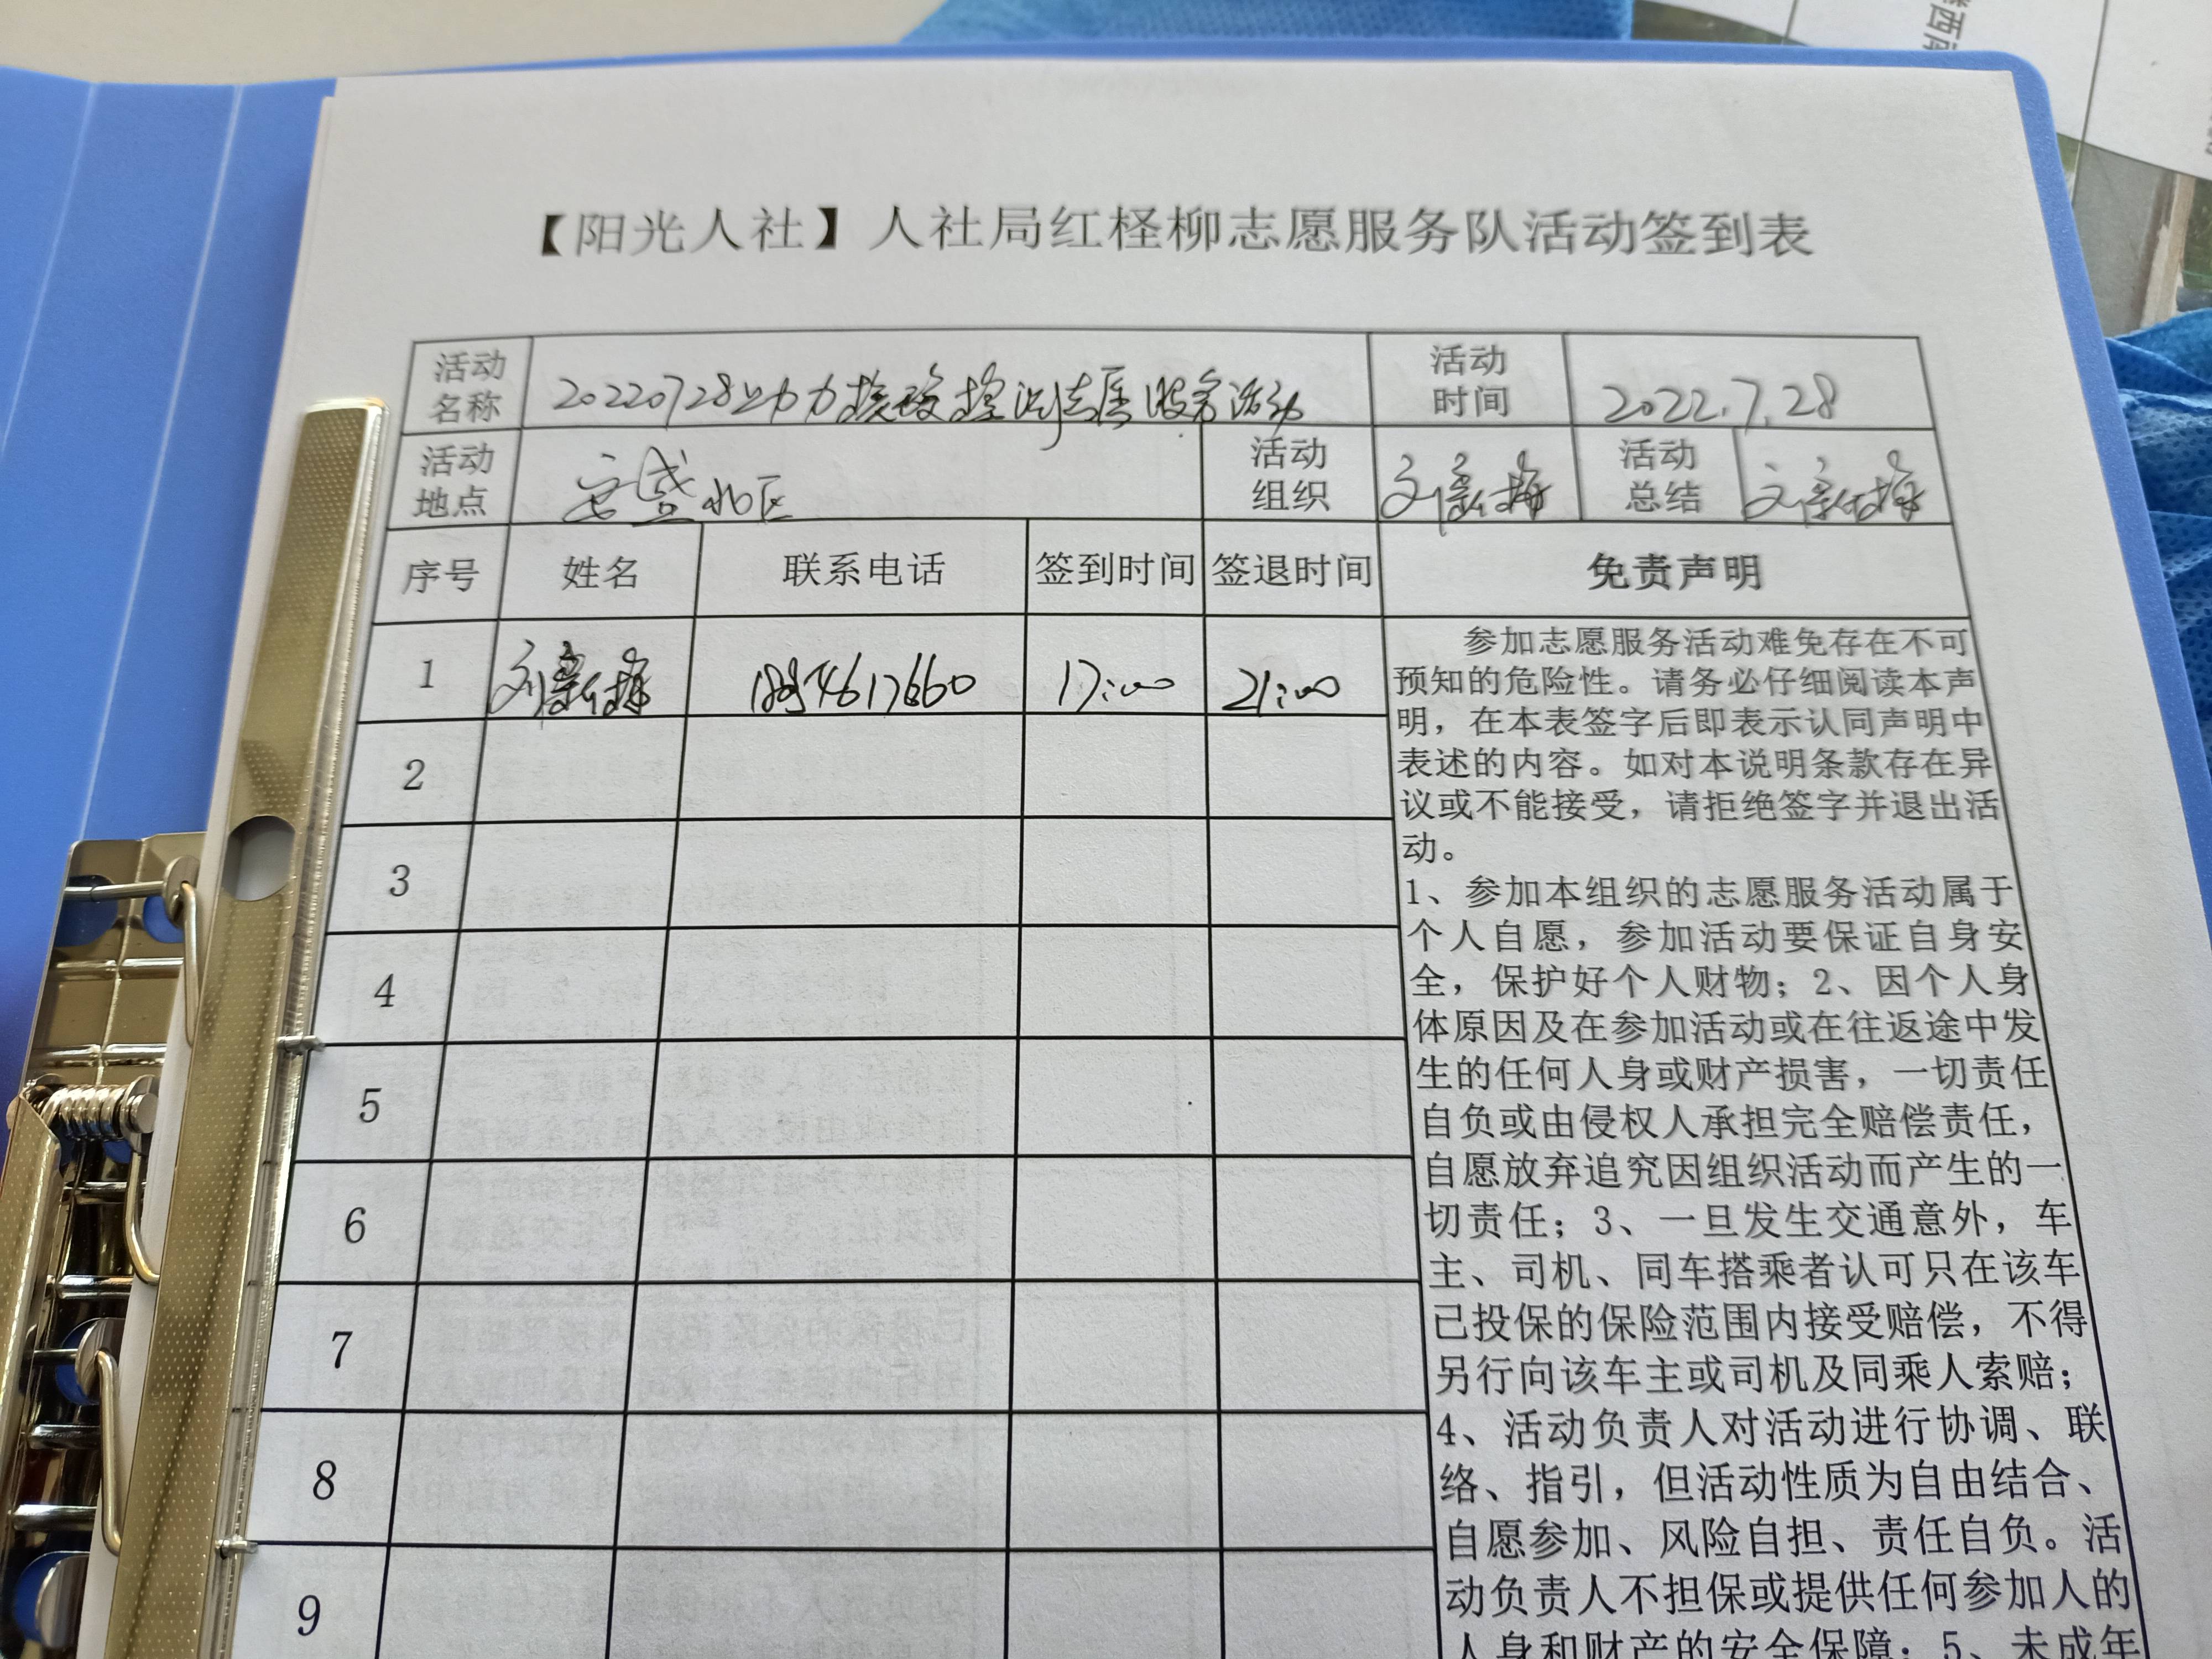 【阳光人社】人社局红柽柳志愿服务队活动签到表
活动名称
20220728助力核酸检测志愿服务活动
活动时间
2022.7.28
活动地点
安盛北区
活动组织
刘新梅
活动总结
刘新梅
序号 姓名 联系电话 签到时间 签退时间 免责声明
1 刘新梅 17:00 21:00
2
3
4
5
6
7
8
9
参加志愿服务活动难免存在不可
预知的危险性。请务必仔细阅读本声
明，在本表签字后即表示认同声明中
表述的内容。如对本说明条款存在异
议或不能接受，请拒绝签字并退出活
动。
1、参加本组织的志愿服务活动属于
个人自愿，参加活动要保证自身安
全，保护好个人财物；2、因个人身
体原因及在参加活动或在往返途中发
生的任何人身或财产损害，一切责任
自负或由侵权人承担完全赔偿责任，
自愿放弃追究因组织活动而产生的一
切责任；3、一旦发生交通意外，车
主、司机、同车搭乘者认可只在该车
已投保的保险范围内接受赔偿，不得
另行向该车主或司机及同乘人索赔；
4、活动负责人对活动进行协调、联
络、指引，但活动性质为自由结合、
自愿参加、风险自担、责任自负。活
动负责人不担保或提供任何参加人的
人身和财产的安全保障；5、未成年